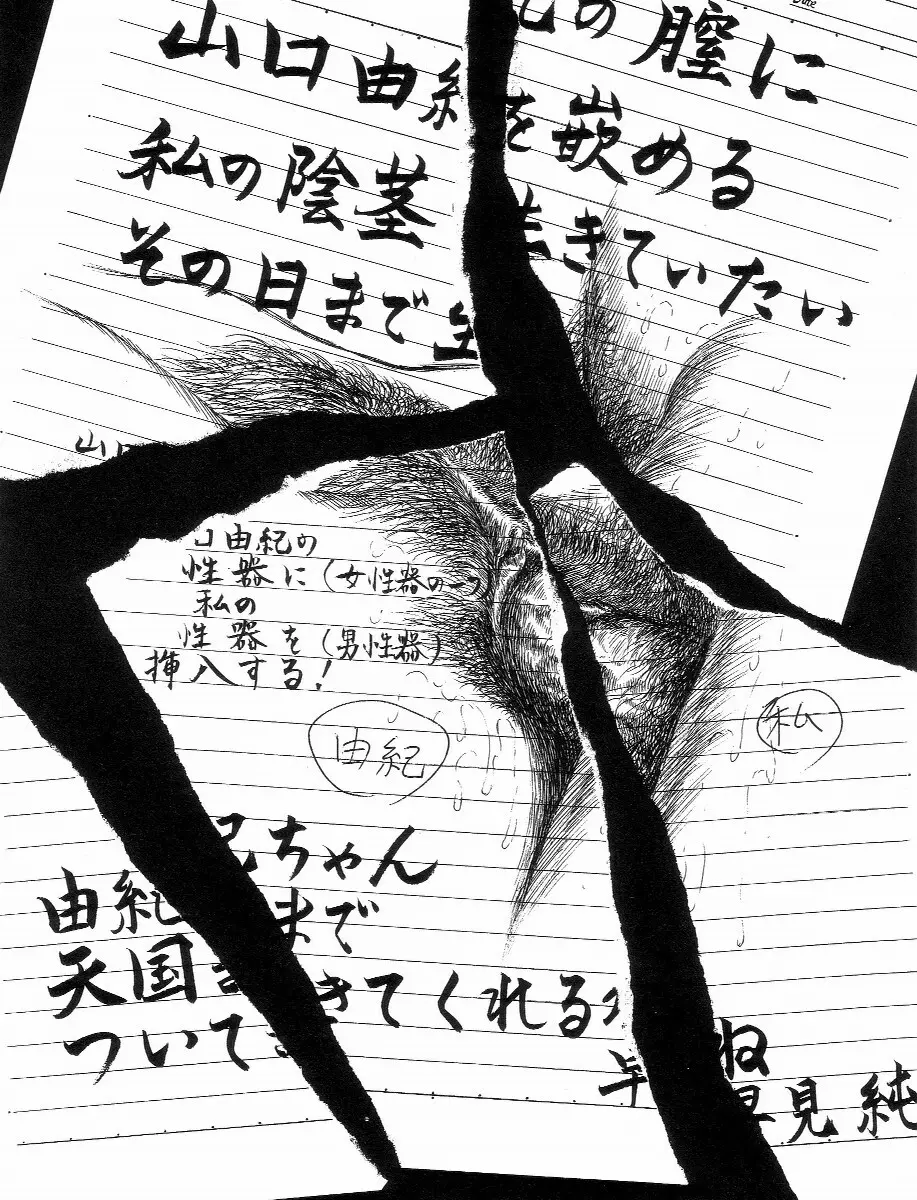 Date
山口由紀の膣に
私の陰茎を嵌める
その日まで生きていたい
山口
口由紀の
性器に(女性器の一つ
私の
性器を(男性器)
挿入する!
由紀
私
由紀ちゃん
天国まで
ついてきてくれるかね
早見純